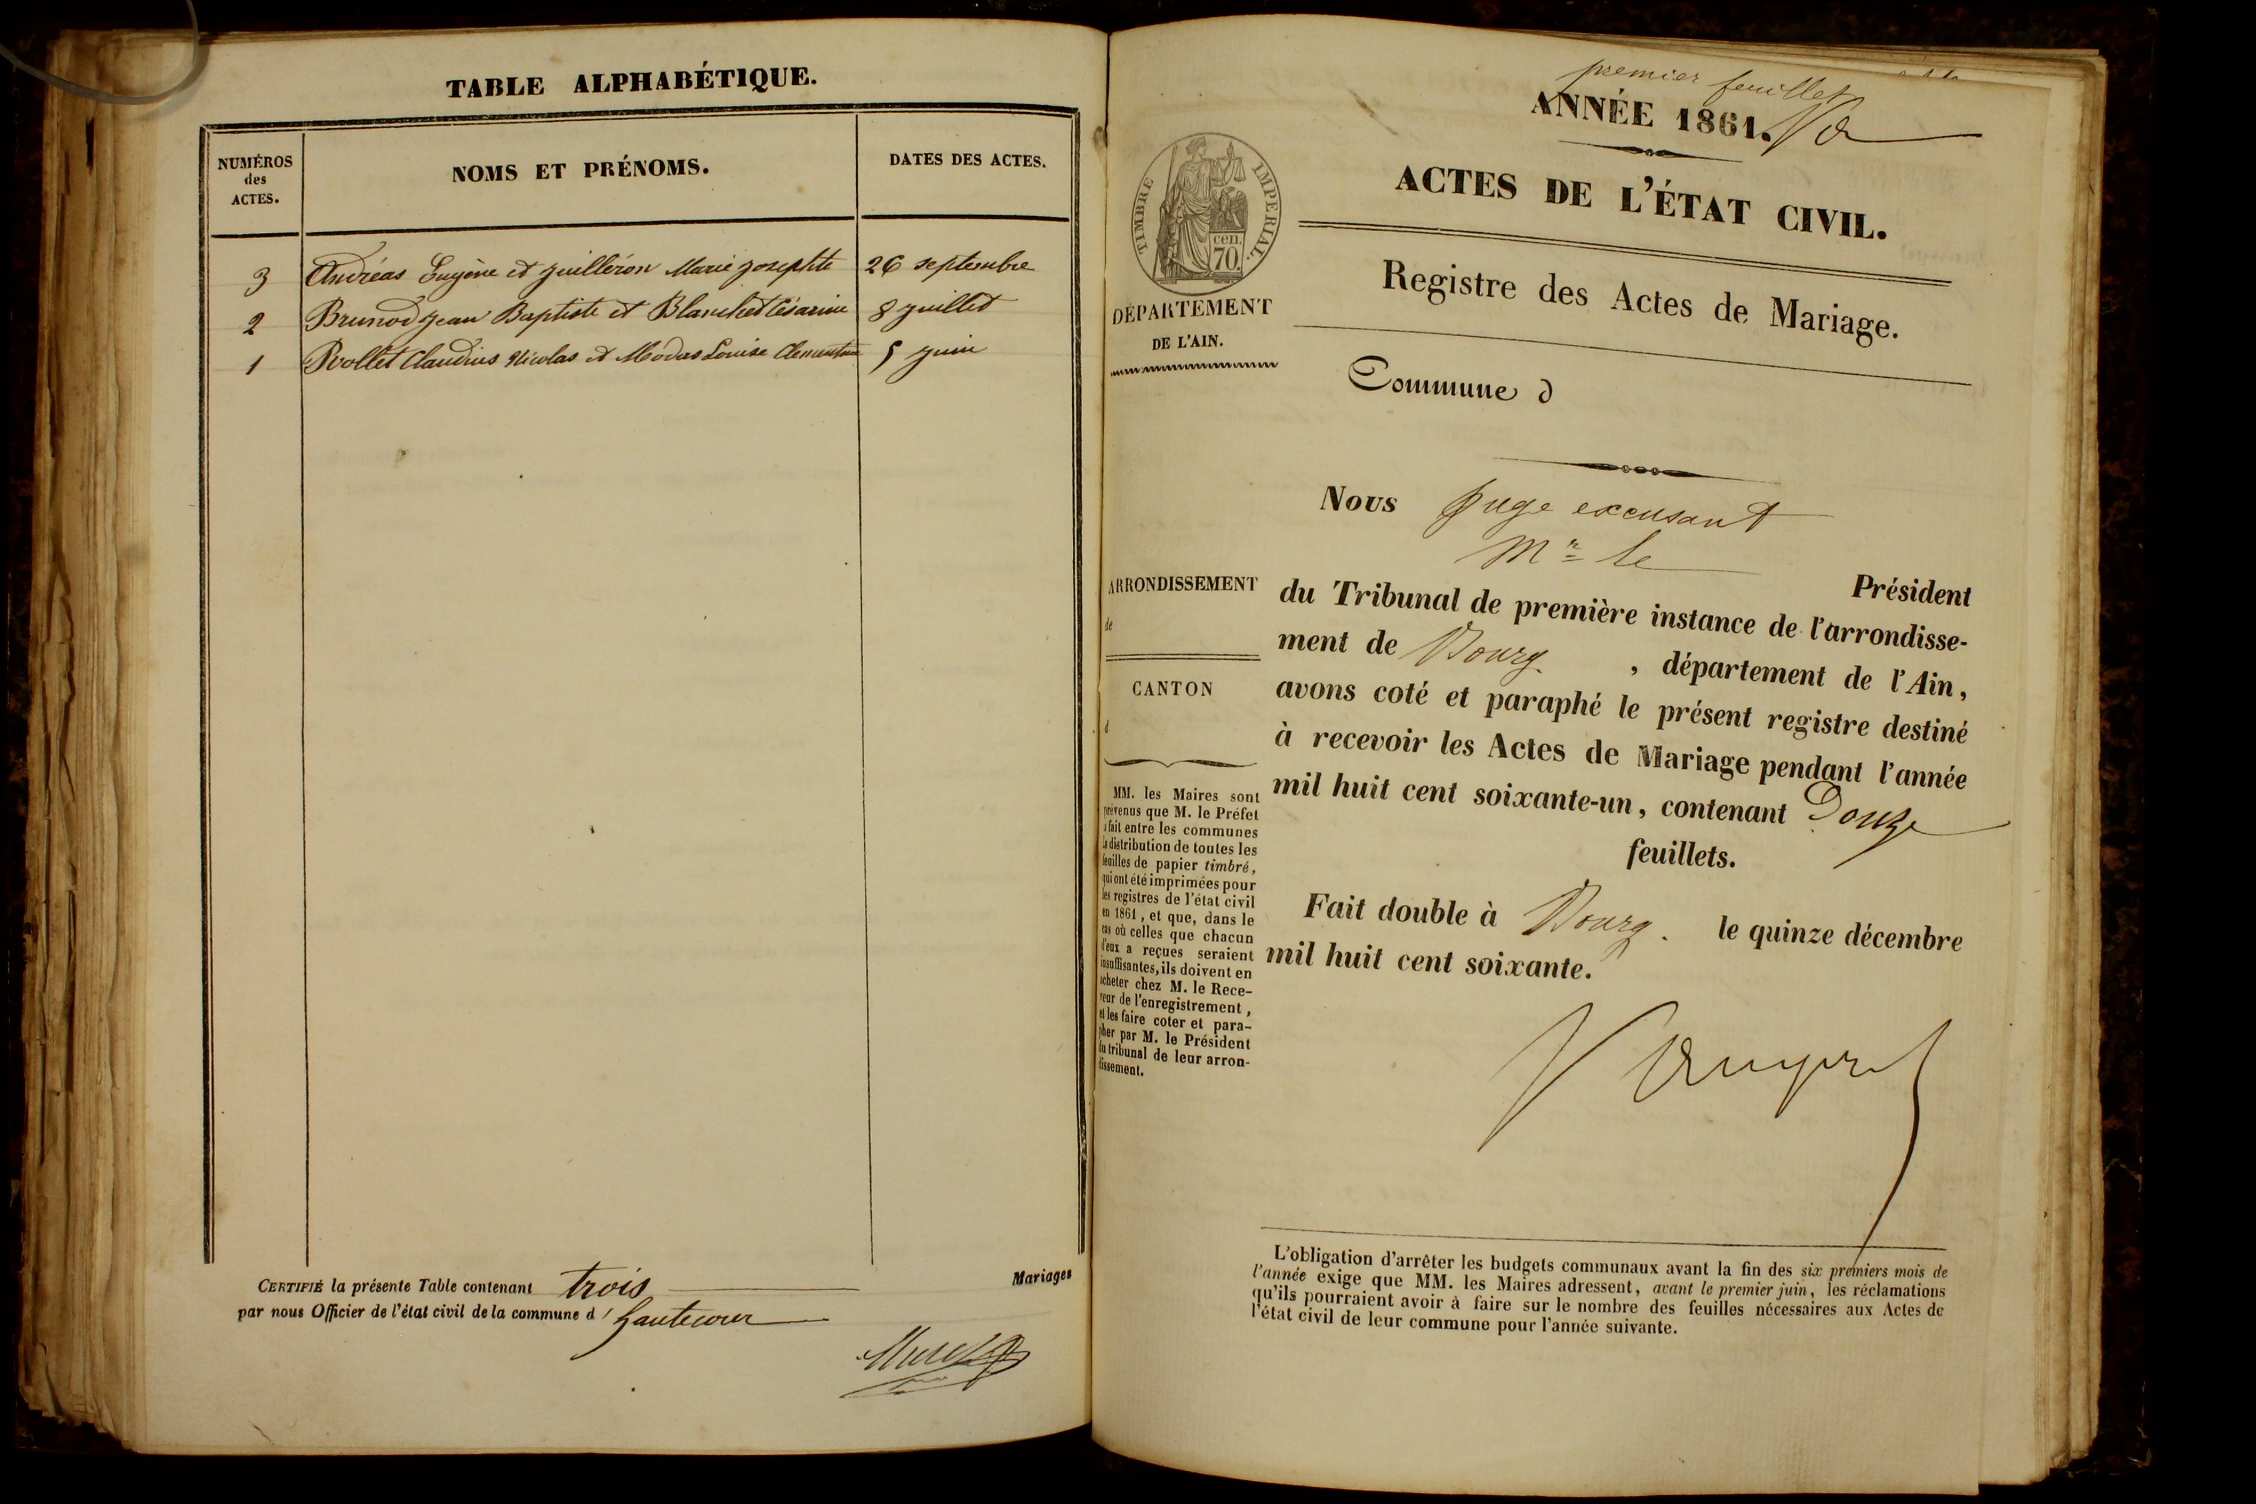 TABLE ALPHABÉTIQUE.
NUMÉROS
des
ACTES.
NOMS ET PRÉNOMS.
DATES DES ACTES.
3 Andréas Eugène et Guilléron Marie josephte 26 septembre
2 Brunod jean Baptiste et Blanchet Césarine 8 juillet
1 Rollet Claudius Nicolas et Louise Clementine 5 juin
CERTIFIÉ la présente Table contenant trois Mariages
par nous Officier de l'état civil de la commune d' hautecour
premier feuillet
ANNÉE 1861.
ACTES DE L'ÉTAT CIVIL.
TIMBRE IMPERIAL.
cen.
70
Registre des Actes de Mariage.
DÉPARTEMENT
DE L'AIN.
Commune d
Nous juge excusant
Mr le
Président
du Tribunal de première instance de l'arrondisse-
ment de Bourg. , département de l'Ain,
avons coté et paraphé le présent registre destiné
à recevoir les Actes de Mariage pendant l'année
mil huit cent soixante-un, contenant Douze
feuillets.
Fait double à Bourg. le quinze décembre
mil huit cent soixante.
ARRONDISSEMENT
de
CANTON
d
MM. les Maires sont
prévenus que M. le Préfet
a fait entre les communes
la distribution de toutes les
feuilles de papier timbré,
qui ont été imprimées pour
les registres de l'état civil
en 1861, et que, dans le
cas où celles que chacun
d'eux a reçues seraient
insuffisantes, ils doivent en
acheter chez M. le Rece-
veur de l'enregistrement,
et les faire coter et para-
pher par M. le Président
du tribunal de leur arron-
dissement.
L'obligation d'arrêter les budgets communaux avant la fin des six premiers mois de
l'année exige que MM. les Maires adressent, avant le premier juin, les réclamations
qu'ils pourraient avoir à faire sur le nombre des feuilles nécessaires aux Actes de
l'état civil de leur commune pour l'année suivante.